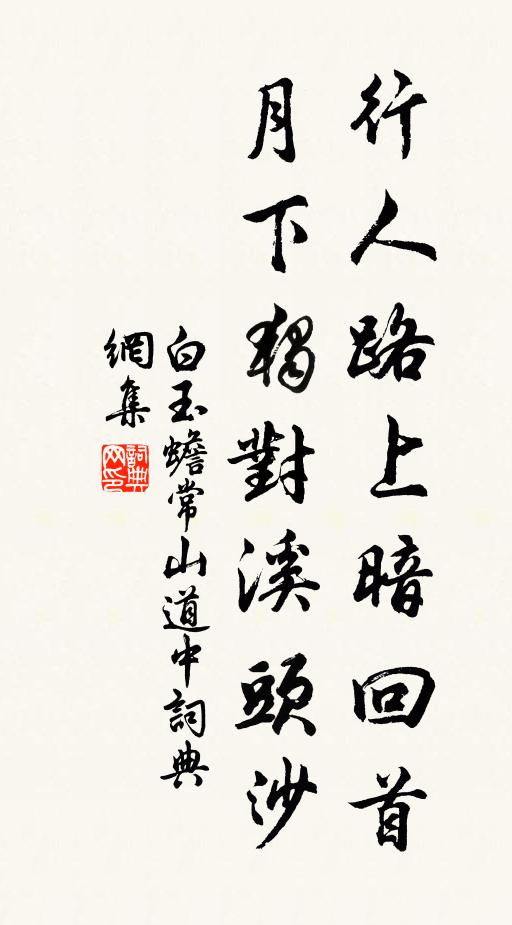 行人路上暗回首
月下獨對溪頭沙
白玉蟾常山道中詞典
網集
詞典
网印